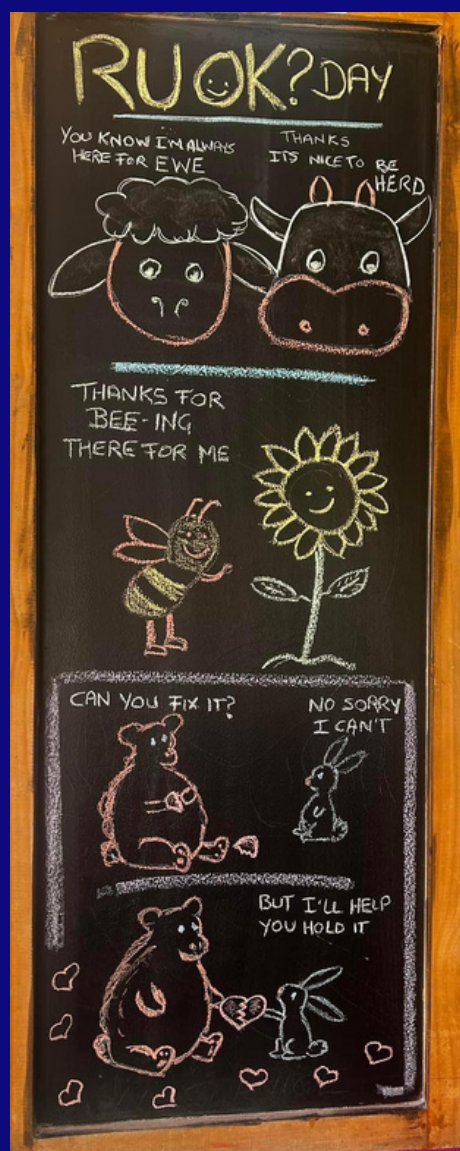 RU OK? DAY
YOU KNOW I'M ALWAYS
HERE FOR EWE
THANKS
ITS NICE TO BE
HERD
THANKS FOR
BEE-ING
THERE FOR ME
CAN YOU FIX IT?
NO SORRY
I CAN'T
BUT I'LL HELP
YOU HOLD IT